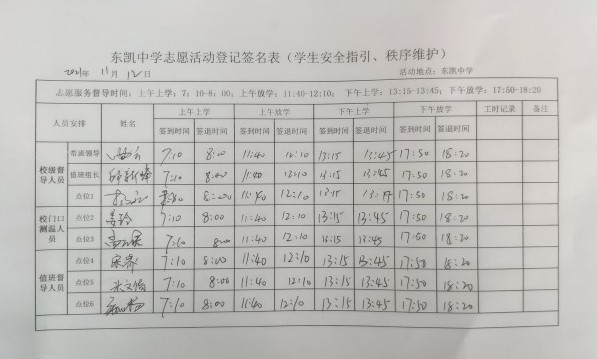 东凯中学志愿活动登记签名表（学生安全指引、秩序维护）
2021年 11月 12日 活动地点：东凯中学
志愿服务督导时间：上午上学：7：10-8：00；上午放学：11:40-12:10； 下午上学：13:15-13:45；下午放学：17:50-18:20
人员安排 姓名 上午上学 上午放学 下午上学 下午放学 工时记录 备注
签到时间 签退时间 签到时间 签退时间 签到时间 签退时间 签到时间 签退时间
校级督导人员 带班领导 7:10 8:00 11:40 12:10 13:15 13:45 17:50 18:20
值班组长 7:10 8:00 11:40 13:10 13:15 13:45 17:50 18:20
点位1 8:00 11:40 12:10 13:15 17:50 18:20
校门口测温人员 点位2 7:10 8:00 11:40 12:10 13:15 13:45 17:50 18:20
点位3 7:10 8:00 11:40 12:10 13:15 13:45 17:50 18:20
值班督导人员 点位4 7:10 8:00 11:40 12:10 13:15 13:45 17:50 18:20
点位5 7:10 8:00 11:40 12:10 13:15 13:45 17:50 18:20
点位6 7:10 8:00 11:40 12:10 13:15 13:45 17:50 18:20